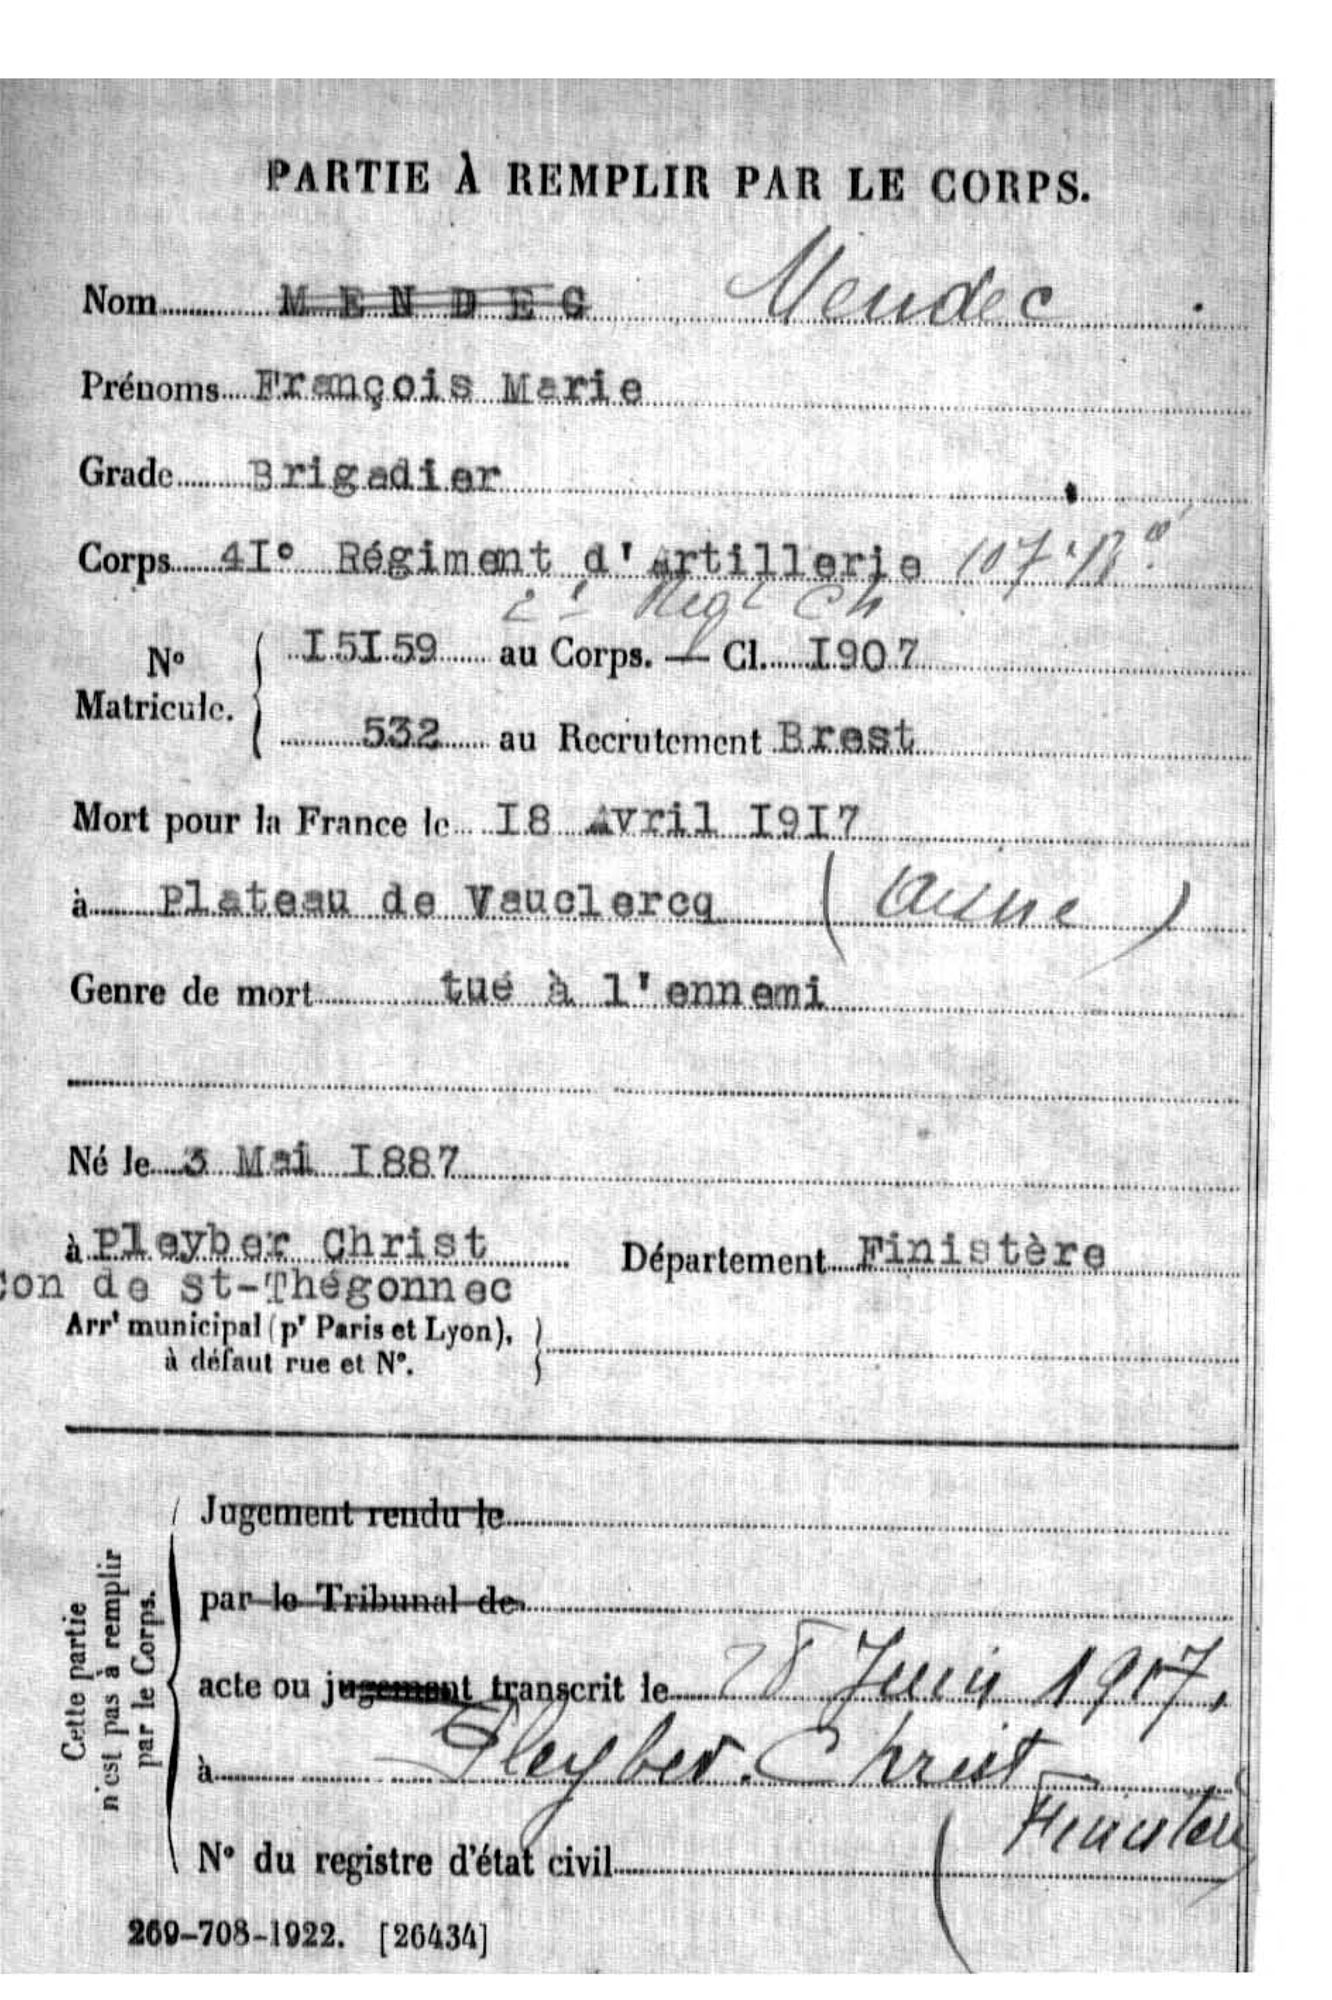 PARTIE À REMPLIR PAR LE CORPS.
Nom MENDEC Mendec
Prénoms François Marie
Grade Brigadier
Corps 41° Régiment d'Artillerie 107e Bie
2e Regt Ch
N° Matricule. 15159 au Corps. — Cl. 1907
532 au Recrutement Brest
Mort pour la France le 18 Avril 1917
à Plateau de Vauclercq (Aisne)
Genre de mort tué à l'ennemi
Né le 3 Mai 1887
à Pleyber Christ Département Finistère
con de St-Thégonnec
Arrt municipal (pr Paris et Lyon),
à défaut rue et N°.
Cette partie n'est pas à remplir par le Corps.
Jugement rendu le
par le Tribunal de
acte ou jugement transcrit le 28 Juin 1917,
à Pleyber-Christ
(Finistère)
N° du registre d'état civil
269-708-1922. [26434]